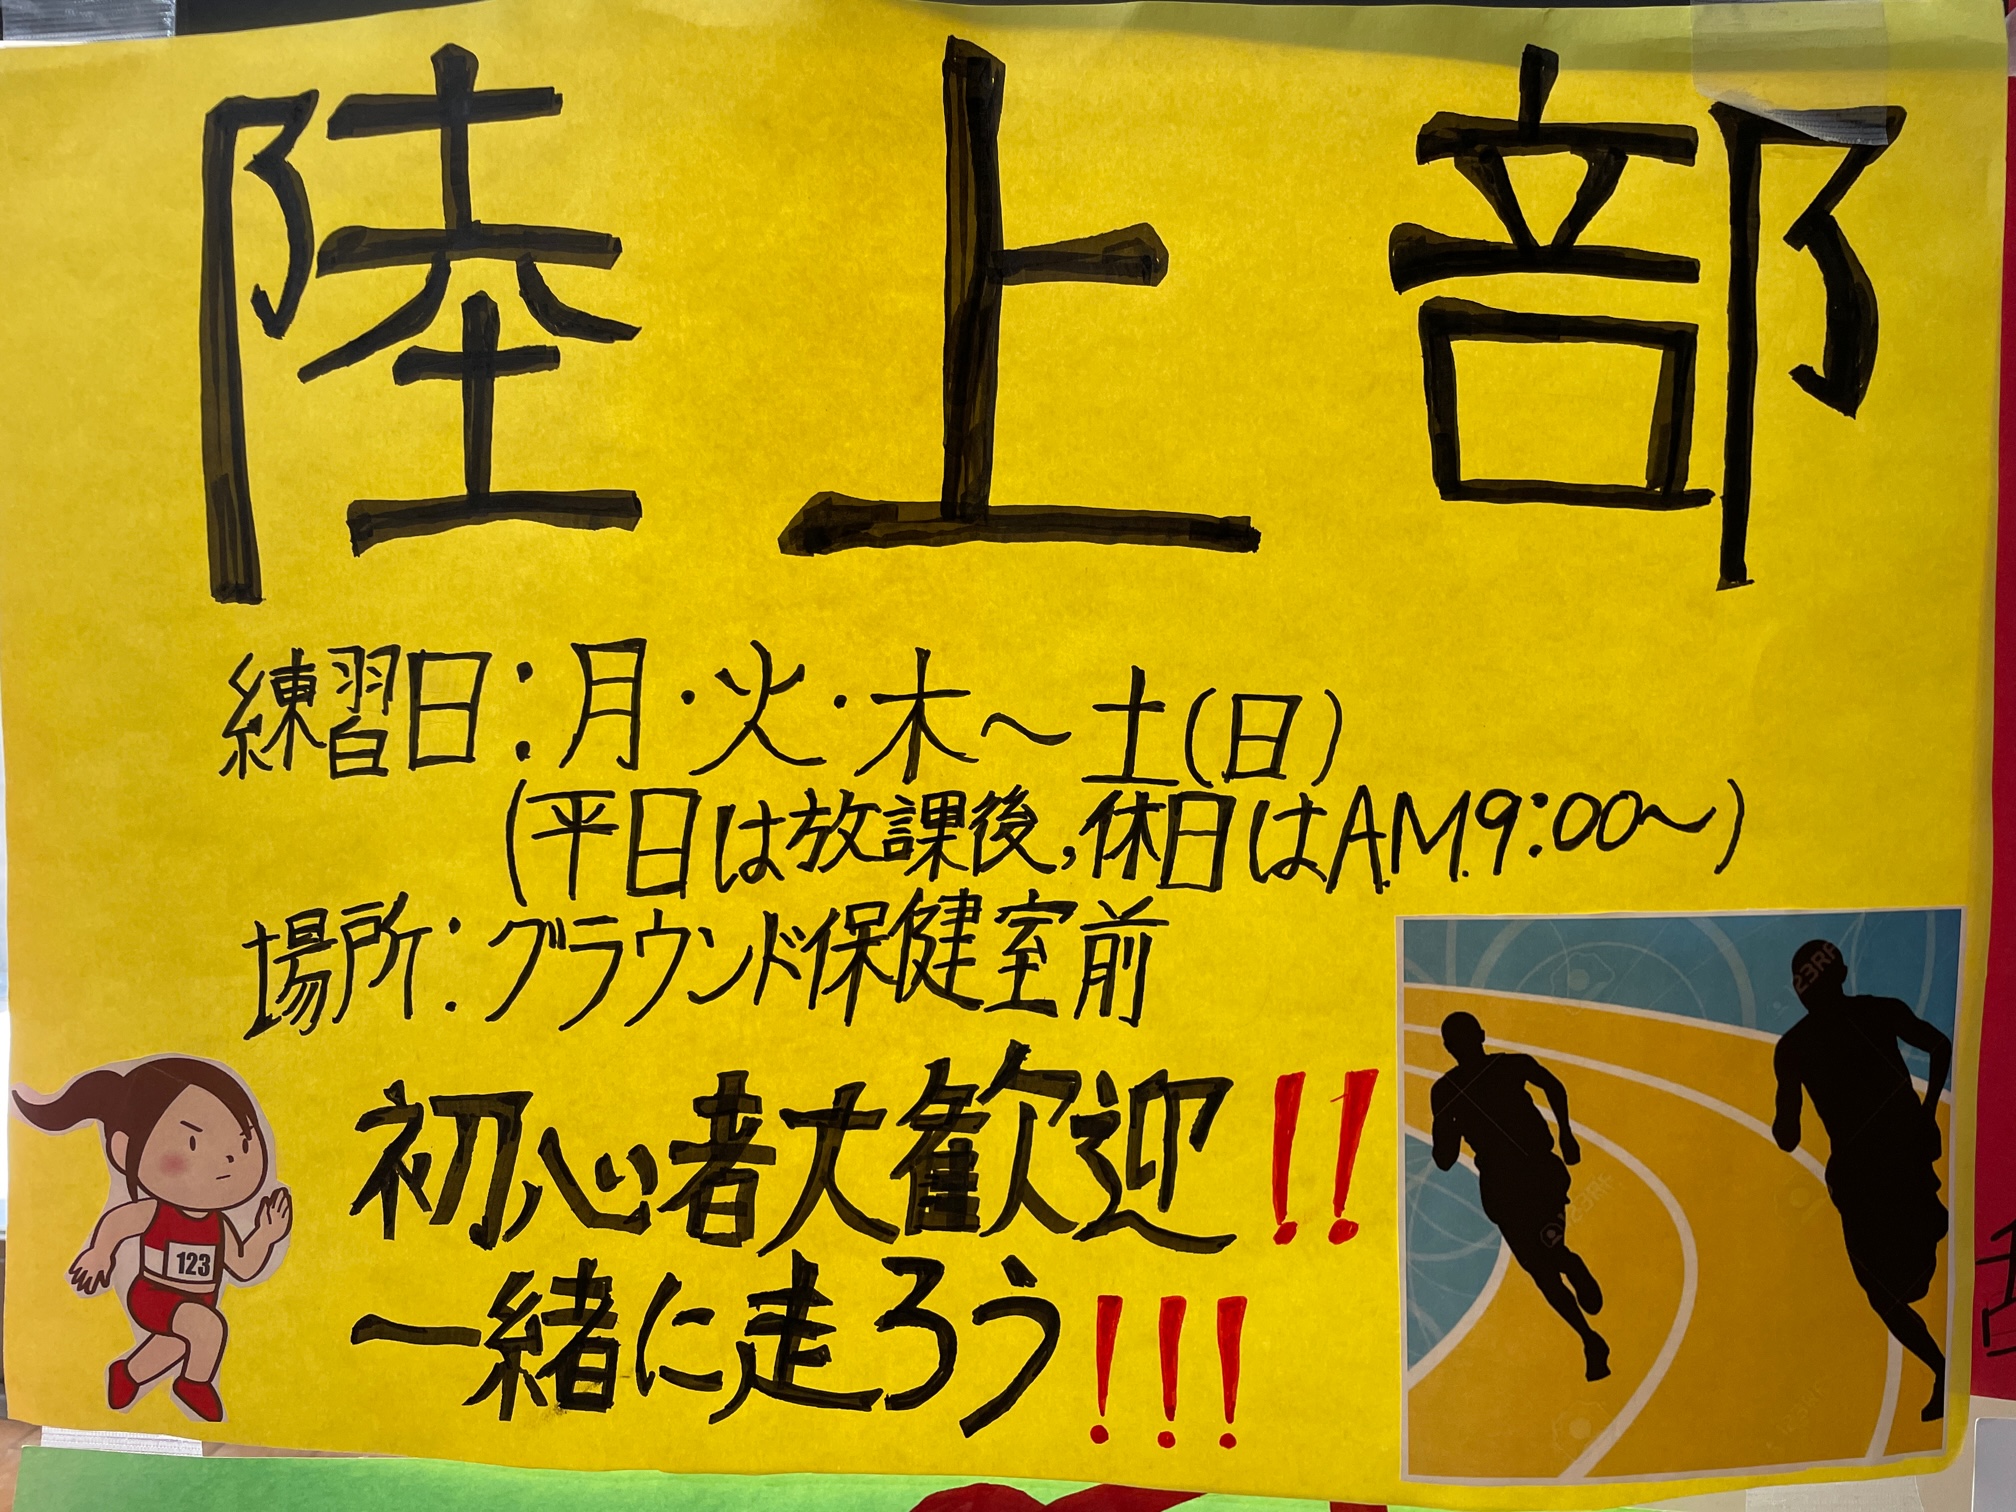 陸上部
練習日:月・火・木～土(日)
(平日は放課後,休日はA.M.9:00～)
場所:グラウンド保健室前
初心者大歓迎!!
一緒に走ろう!!!
123
123RF
123RF
123RF